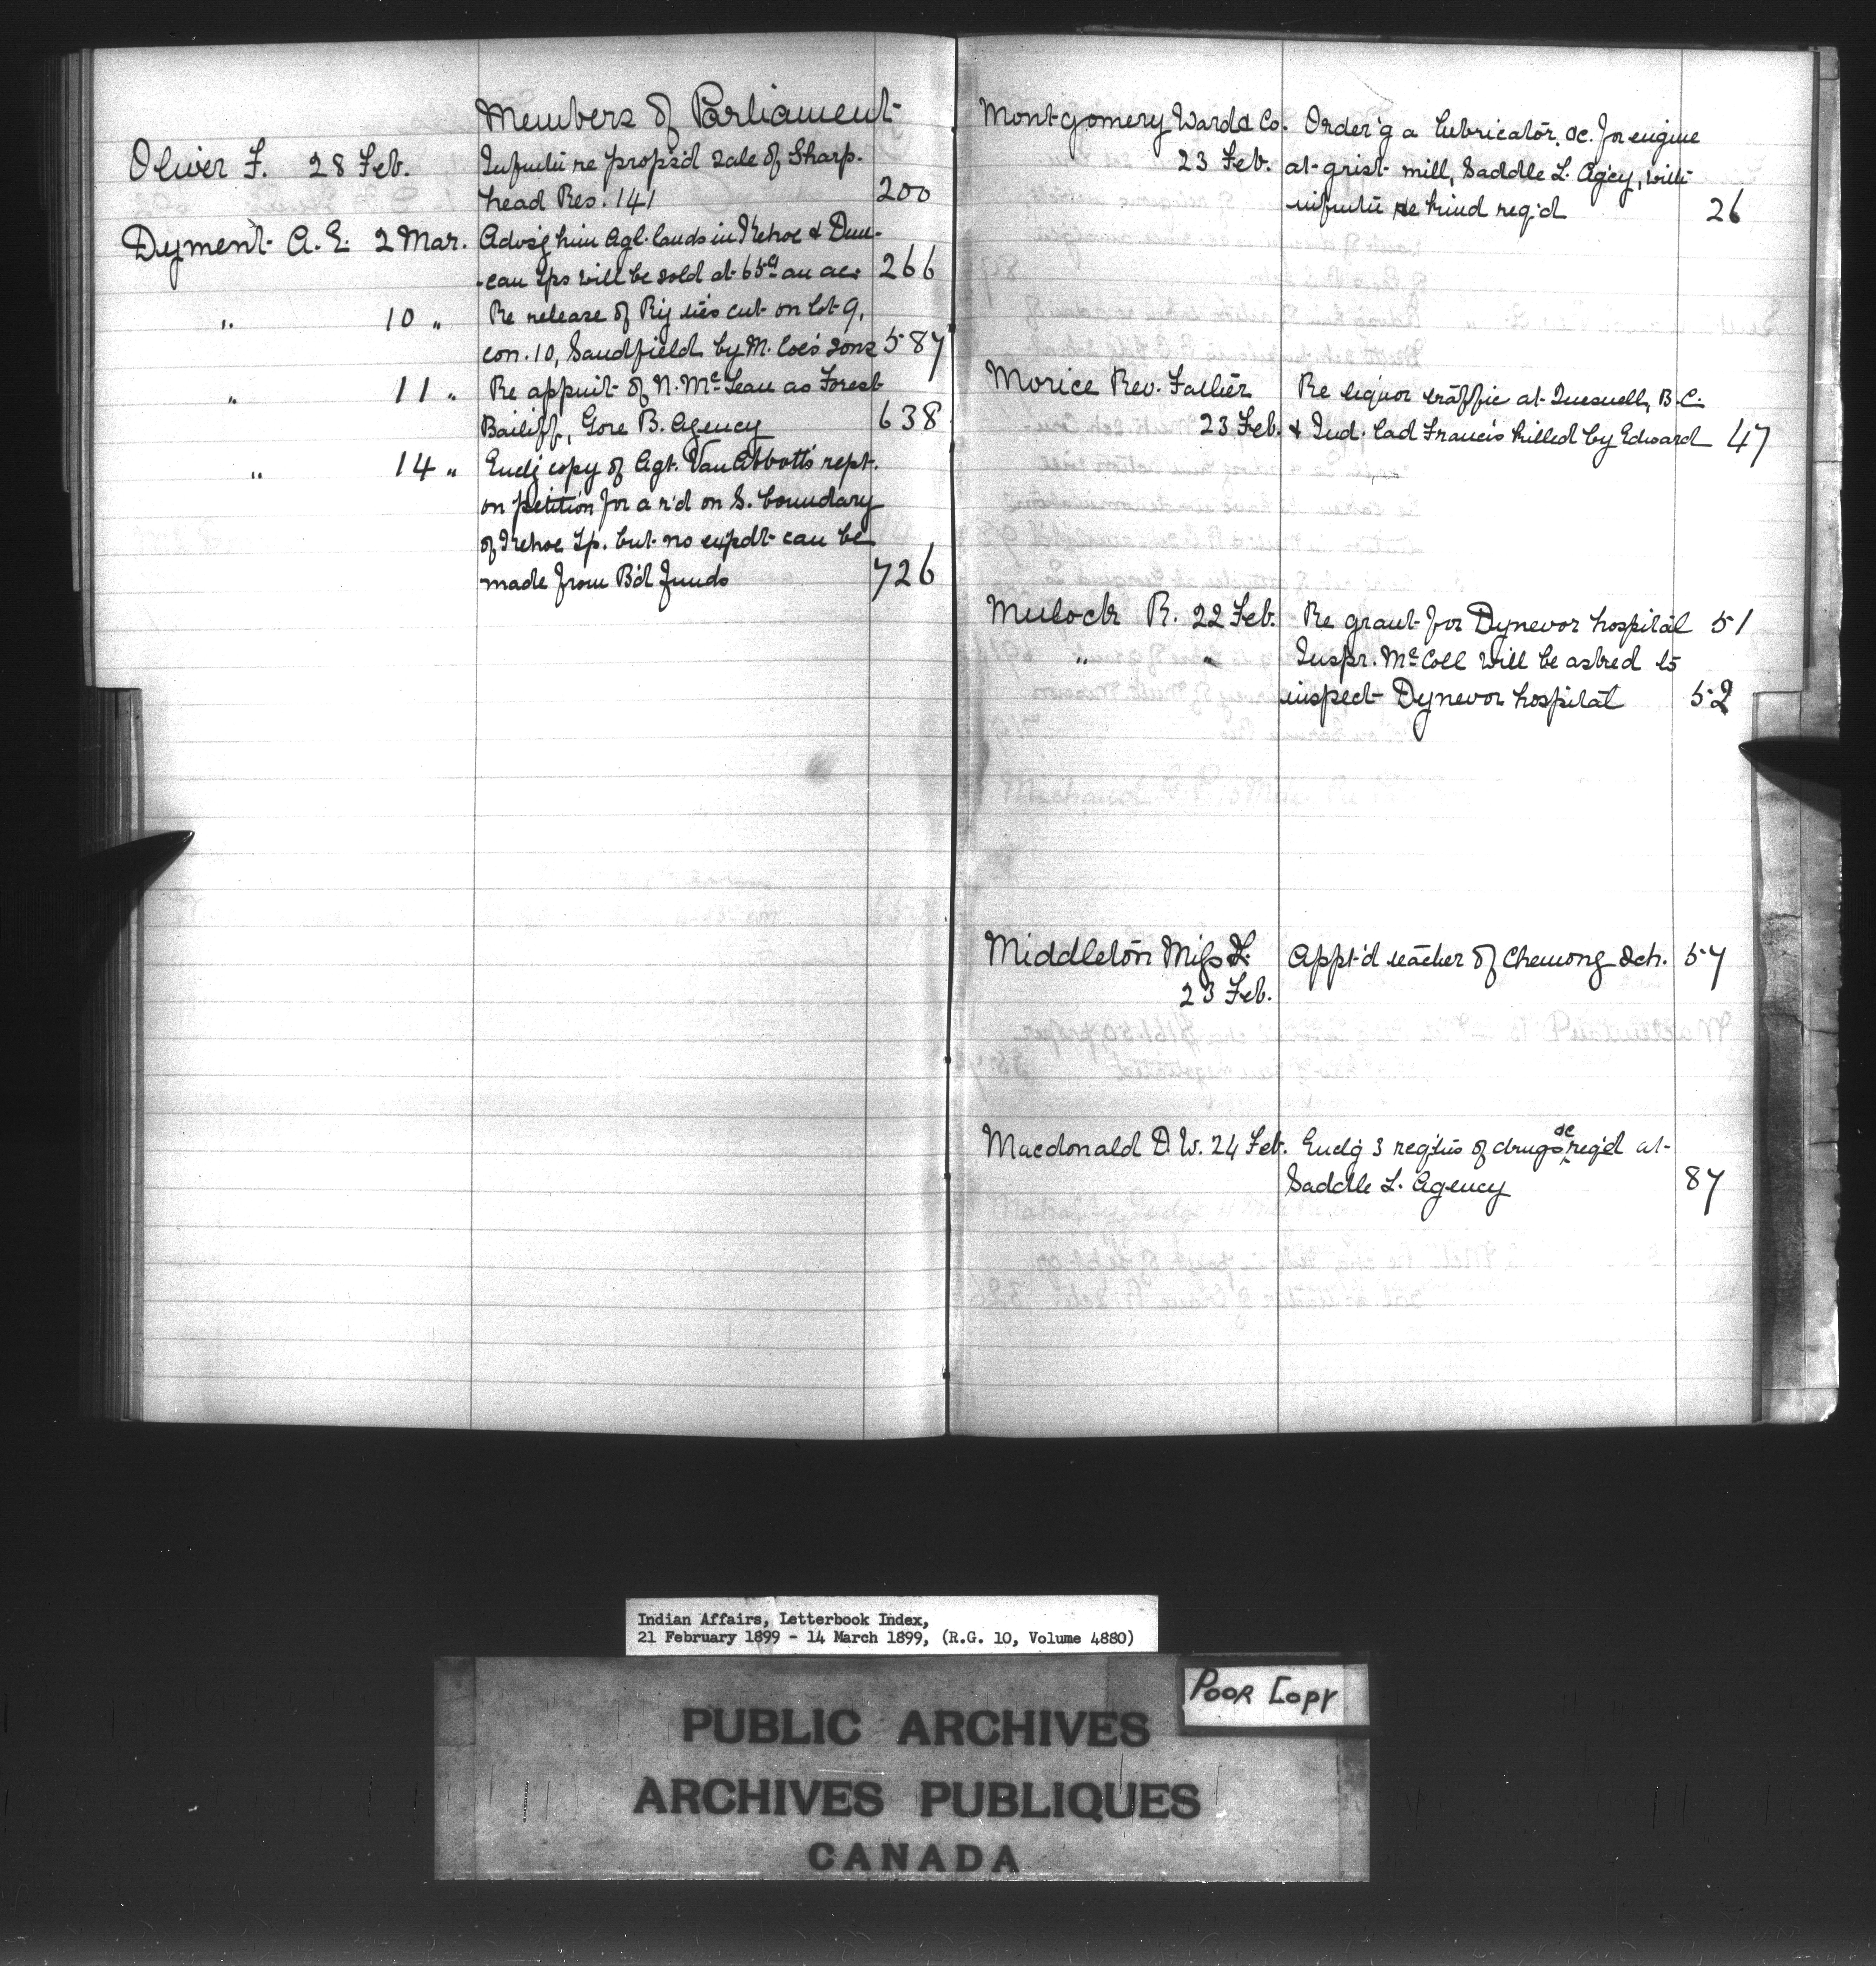 Members of Parliament
Oliver F. 28 Feb. Infmtn re propsd sale of Sharp-
head Res. 141 200
Dyment A. E. 2 Mar. Advsg him Agl. lands in Kehoe & Dun-
-can Tps will be sold at 65¢ an ac. 266
" 10 " Re release of Ry ties cut on lot 9,
con. 10, Sandfield by M. Coe's sons 587
" 11 " Re appmt of N. McLean as Forest
Bailiff, Gore B. Agency 638
" 14 " Encl'g copy of Agt. Van Abbott's rept.
on petition for a r'd on S. boundary
of Kehoe Tp. but no expdt can be
made from B'd funds 726
Montgomery Ward & Co. Order'g a lubricator, &c. for engine
23 Feb. at grist mill, Saddle L. Ag'cy, with
infmtn re kind req'd 26
Morice Rev. Father Re liquor traffic at Quesnell, B.C.
23 Feb. & Ind. lad Francis killed by Edward 47
Mulock R. 22 Feb. Re grant for Dynevor hospital 51
" " Inspr. McColl will be asked to
inspect Dynevor hospital 52
Middleton Miss L. Appt'd teacher of Chemong Sch. 57
23 Feb.
Macdonald D. W. 24 Feb. Encl'g 3 req'tns of drugs &c req'd at
Saddle L. Agency 87
Indian Affairs, Letterbook Index,
21 February 1899 - 14 March 1899, (R.G. 10, Volume 4880)
Poor Copy
PUBLIC ARCHIVES
ARCHIVES PUBLIQUES
CANADA